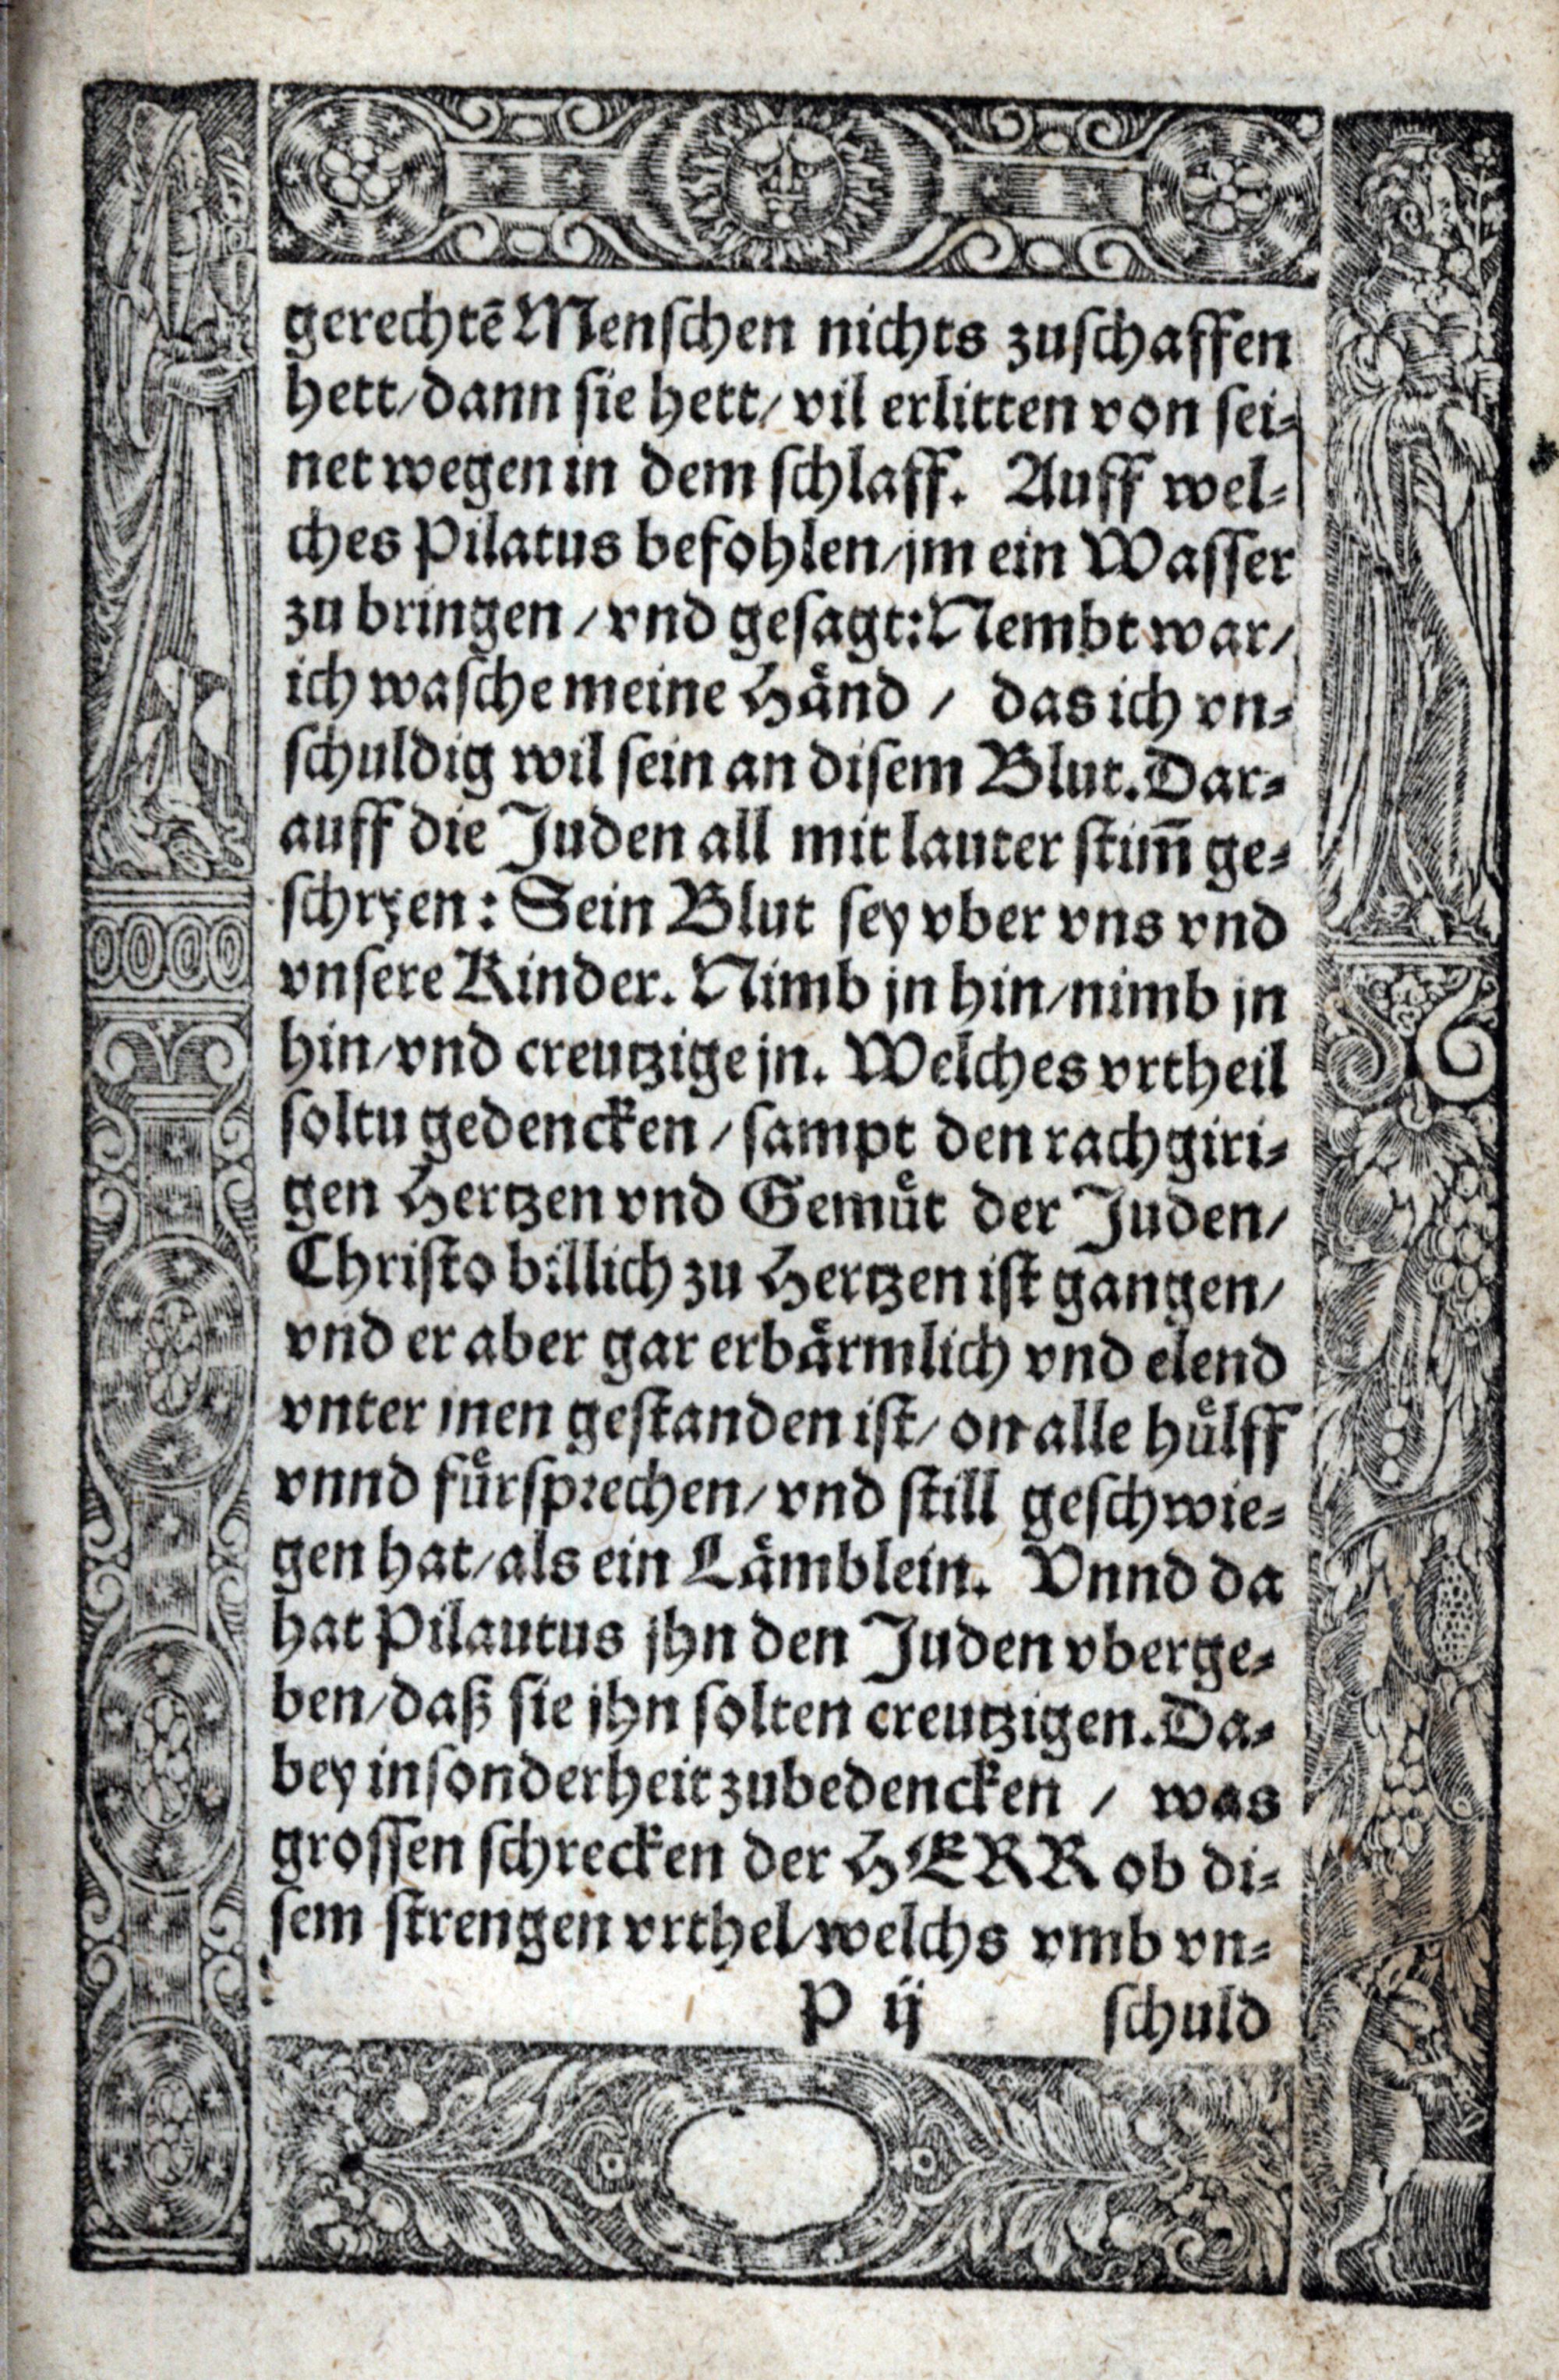 gerechtē Menschen nichts zuschaffen
hett/dann sie hett/ vil erlitten von sei⸗
net wegen in dem schlaff. Auff wel⸗
ches Pilatus befohlen/jm ein Wasser
zu bringen/vnd gesagt: Nembt war/
ich wasche meine Haͤnd / das ich vn⸗
schuldig wil sein an disem Blut. Dar⸗
auff die Juden all mit lauter stim̄ ge⸗
schryen: Sein Blut sey vber vns vnd
vnsere Kinder. Nimb jn hin/nimb jn
hin/vnd creutzige jn. Welches vrtheil
soltu gedencken/sampt den rachgiri⸗
gen Hertzen vnd Gemuͤt der Juden/
Christo billich zu Hertzen ist gangen/
vnd er aber gar erbaͤrmlich vnd elend
vnter jnen gestanden ist/ on alle huͤlff
vnnd fuͤrsprechen/vnd still geschwie⸗
gen hat/als ein Laͤmblein. Vnnd da
hat Pilautus jhn den Juden vberge⸗
ben/daß sie jhn solten creutzigen. Da⸗
bey insonderheit zubedencken / was
grossen schrecken der HERR ob di⸗
sem strengen vrthel/welchs vmb vn⸗
P ij schuld